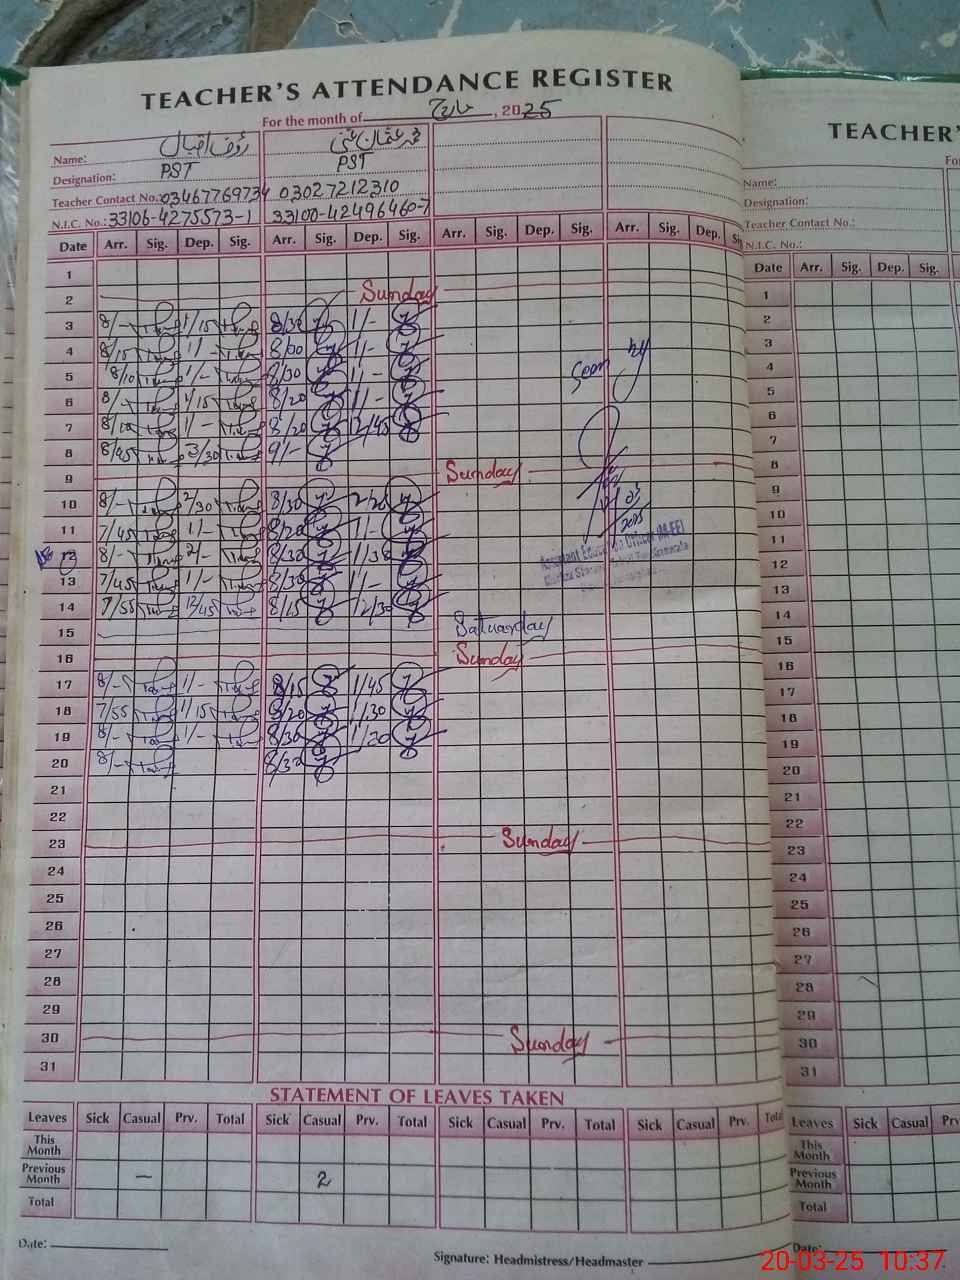 TEACHER'S ATTENDANCE REGISTER
For the month of مارچ, 2025
Name: رؤف اقبال محمد عثمان غنی
Designation: PST PST
Teacher Contact No.: 03467769734 03027212310
N.I.C. No.: 33106-4275573-1 33100-4249646-7
Date Arr. Sig. Dep. Sig. Arr. Sig. Dep. Sig. Arr. Sig. Dep. Sig. Arr. Sig. Dep.
1
2 Sunday
3 8/- 1/15 8/30 1/-
4 8/15 1/- 8/00 1/-
5 8/10 1/- 8/30 1/-
Seen by
6 8/- 1/15 8/20 1/-
7 8/10 1/- 8/20 12/45
8 8/45 3/30 9/-
9 Sunday
10 8/- 2/30 8/30 2/20
11 7/45 1/- 8/20 1/-
2025
12 8/- 2/- 8/30 1/30
Assistant Education Officer (M-EE)
13 7/45 1/- 8/30 1/-
14 7/55 12/45 8/15 12/30
15 Satuarday
16 Sunday
17 8/- 1/- 8/15 1/45
18 7/55 1/15 8/20 1/30
19 8/- 1/- 8/30 1/20
20 8/- 8/30
21
22
23 Sunday
24
25
26
27
28
29
30 Sunday
31
STATEMENT OF LEAVES TAKEN
Leaves Sick Casual Prv. Total Sick Casual Prv. Total Sick Casual Prv. Total Sick Casual Prv. Total
This Month
Previous Month – 2
Total
Date:
Signature: Headmistress/Headmaster
TEACHER'
Name:
Designation:
Teacher Contact No.:
N.I.C. No.:
Date Arr. Sig. Dep. Sig.
1
2
3
4
5
6
7
8
9
10
11
12
13
14
15
16
17
18
19
20
21
22
23
24
25
26
27
28
29
30
31
Leaves Sick Casual
This Month
Previous Month
Total
Date:
20-03-25 10:37